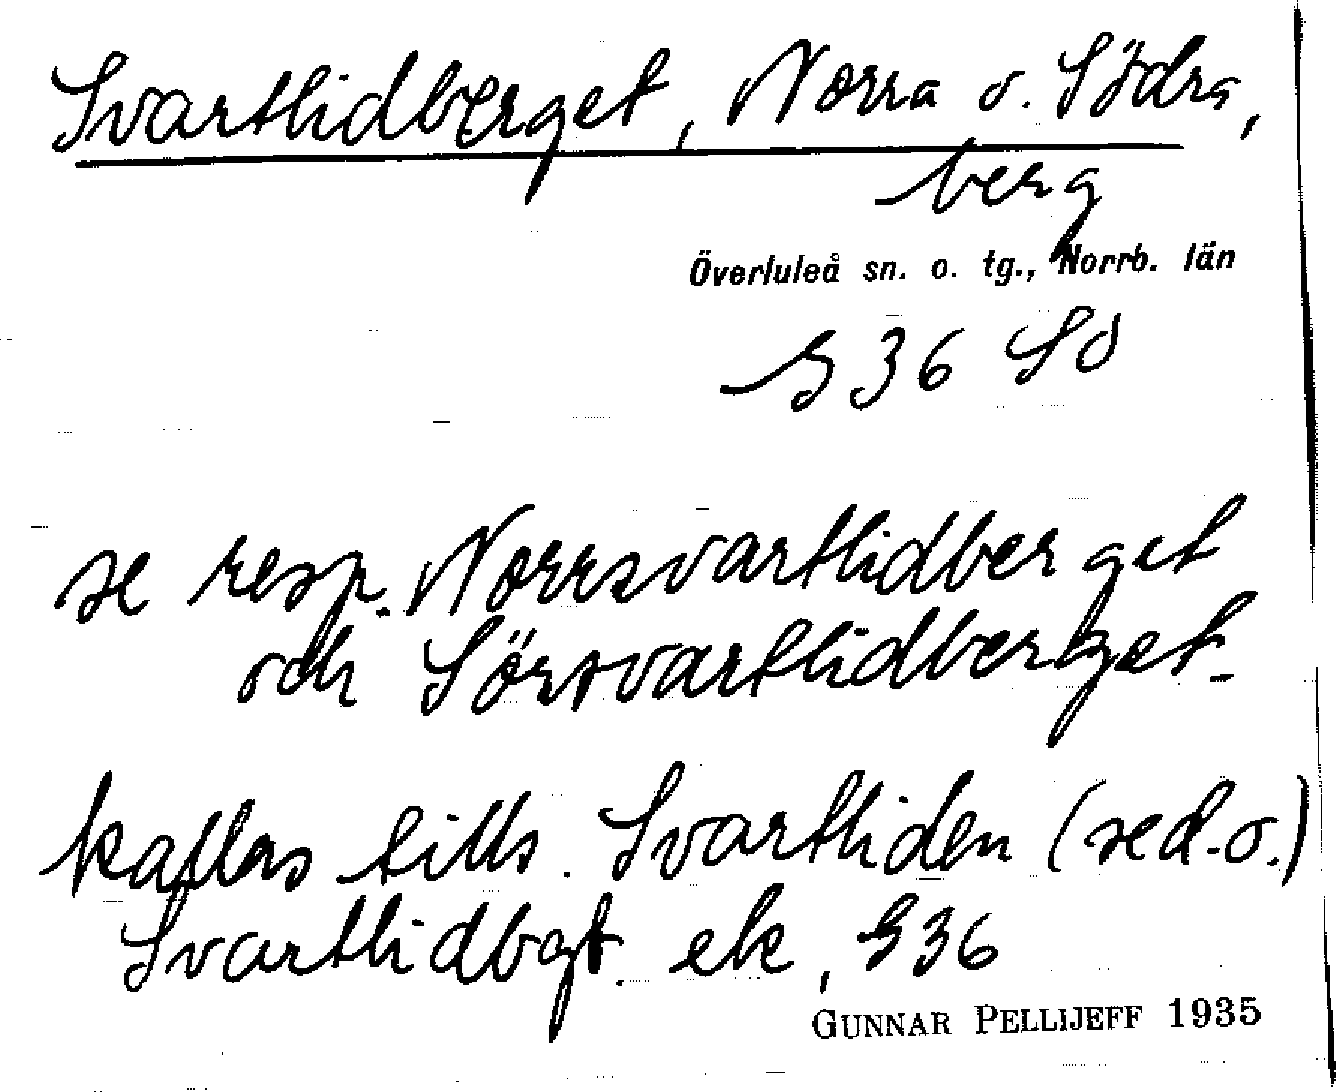 Svartlidberget, Norra o. Södra,
berg
Överluleå sn. o. tg., Norrb. län
S 36 SO
se resp. Norrsvartlidberget
och Sörsvartlidberget.
kallas tills. Svartliden (se d.o.)
Svartlidbgt ek, S36
GUNNAR PELLIJEFF 1935